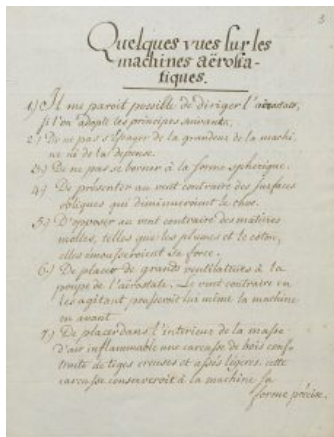 3
Quelques vues sur les
machines aërosta-
tiques.
1) Il me paroit possible de diriger l'aërostate,
si l'on adopte les principes suivants,
2) De ne pas s'effrayer de la grandeur de la machi-
ne ni de la depense.
3) De ne pas se borner à la forme spherique.
4) De présenter au vent contraire des surfaces
obliques qui diminueroient le choc.
5) D'opposer au vent contraire des matières
molles, telles que les plumes et le coton,
elles émousseroient sa force.
6) De placer de grands ventilateurs à la
poupe de l'aërostate. Le vent contraire en
les agitant pousseroit lui même la machine
en avant.
7) De placer dans l'interieur de la masse
d'air inflammable une carcasse de bois cons-
truite de tiges creuses et assés légeres. cette
carcasse conserveroit à la machine sa
forme précise.